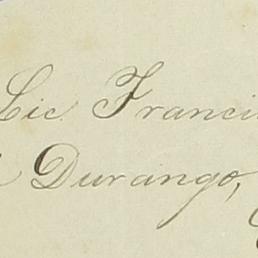 Lic Franci
Durango,